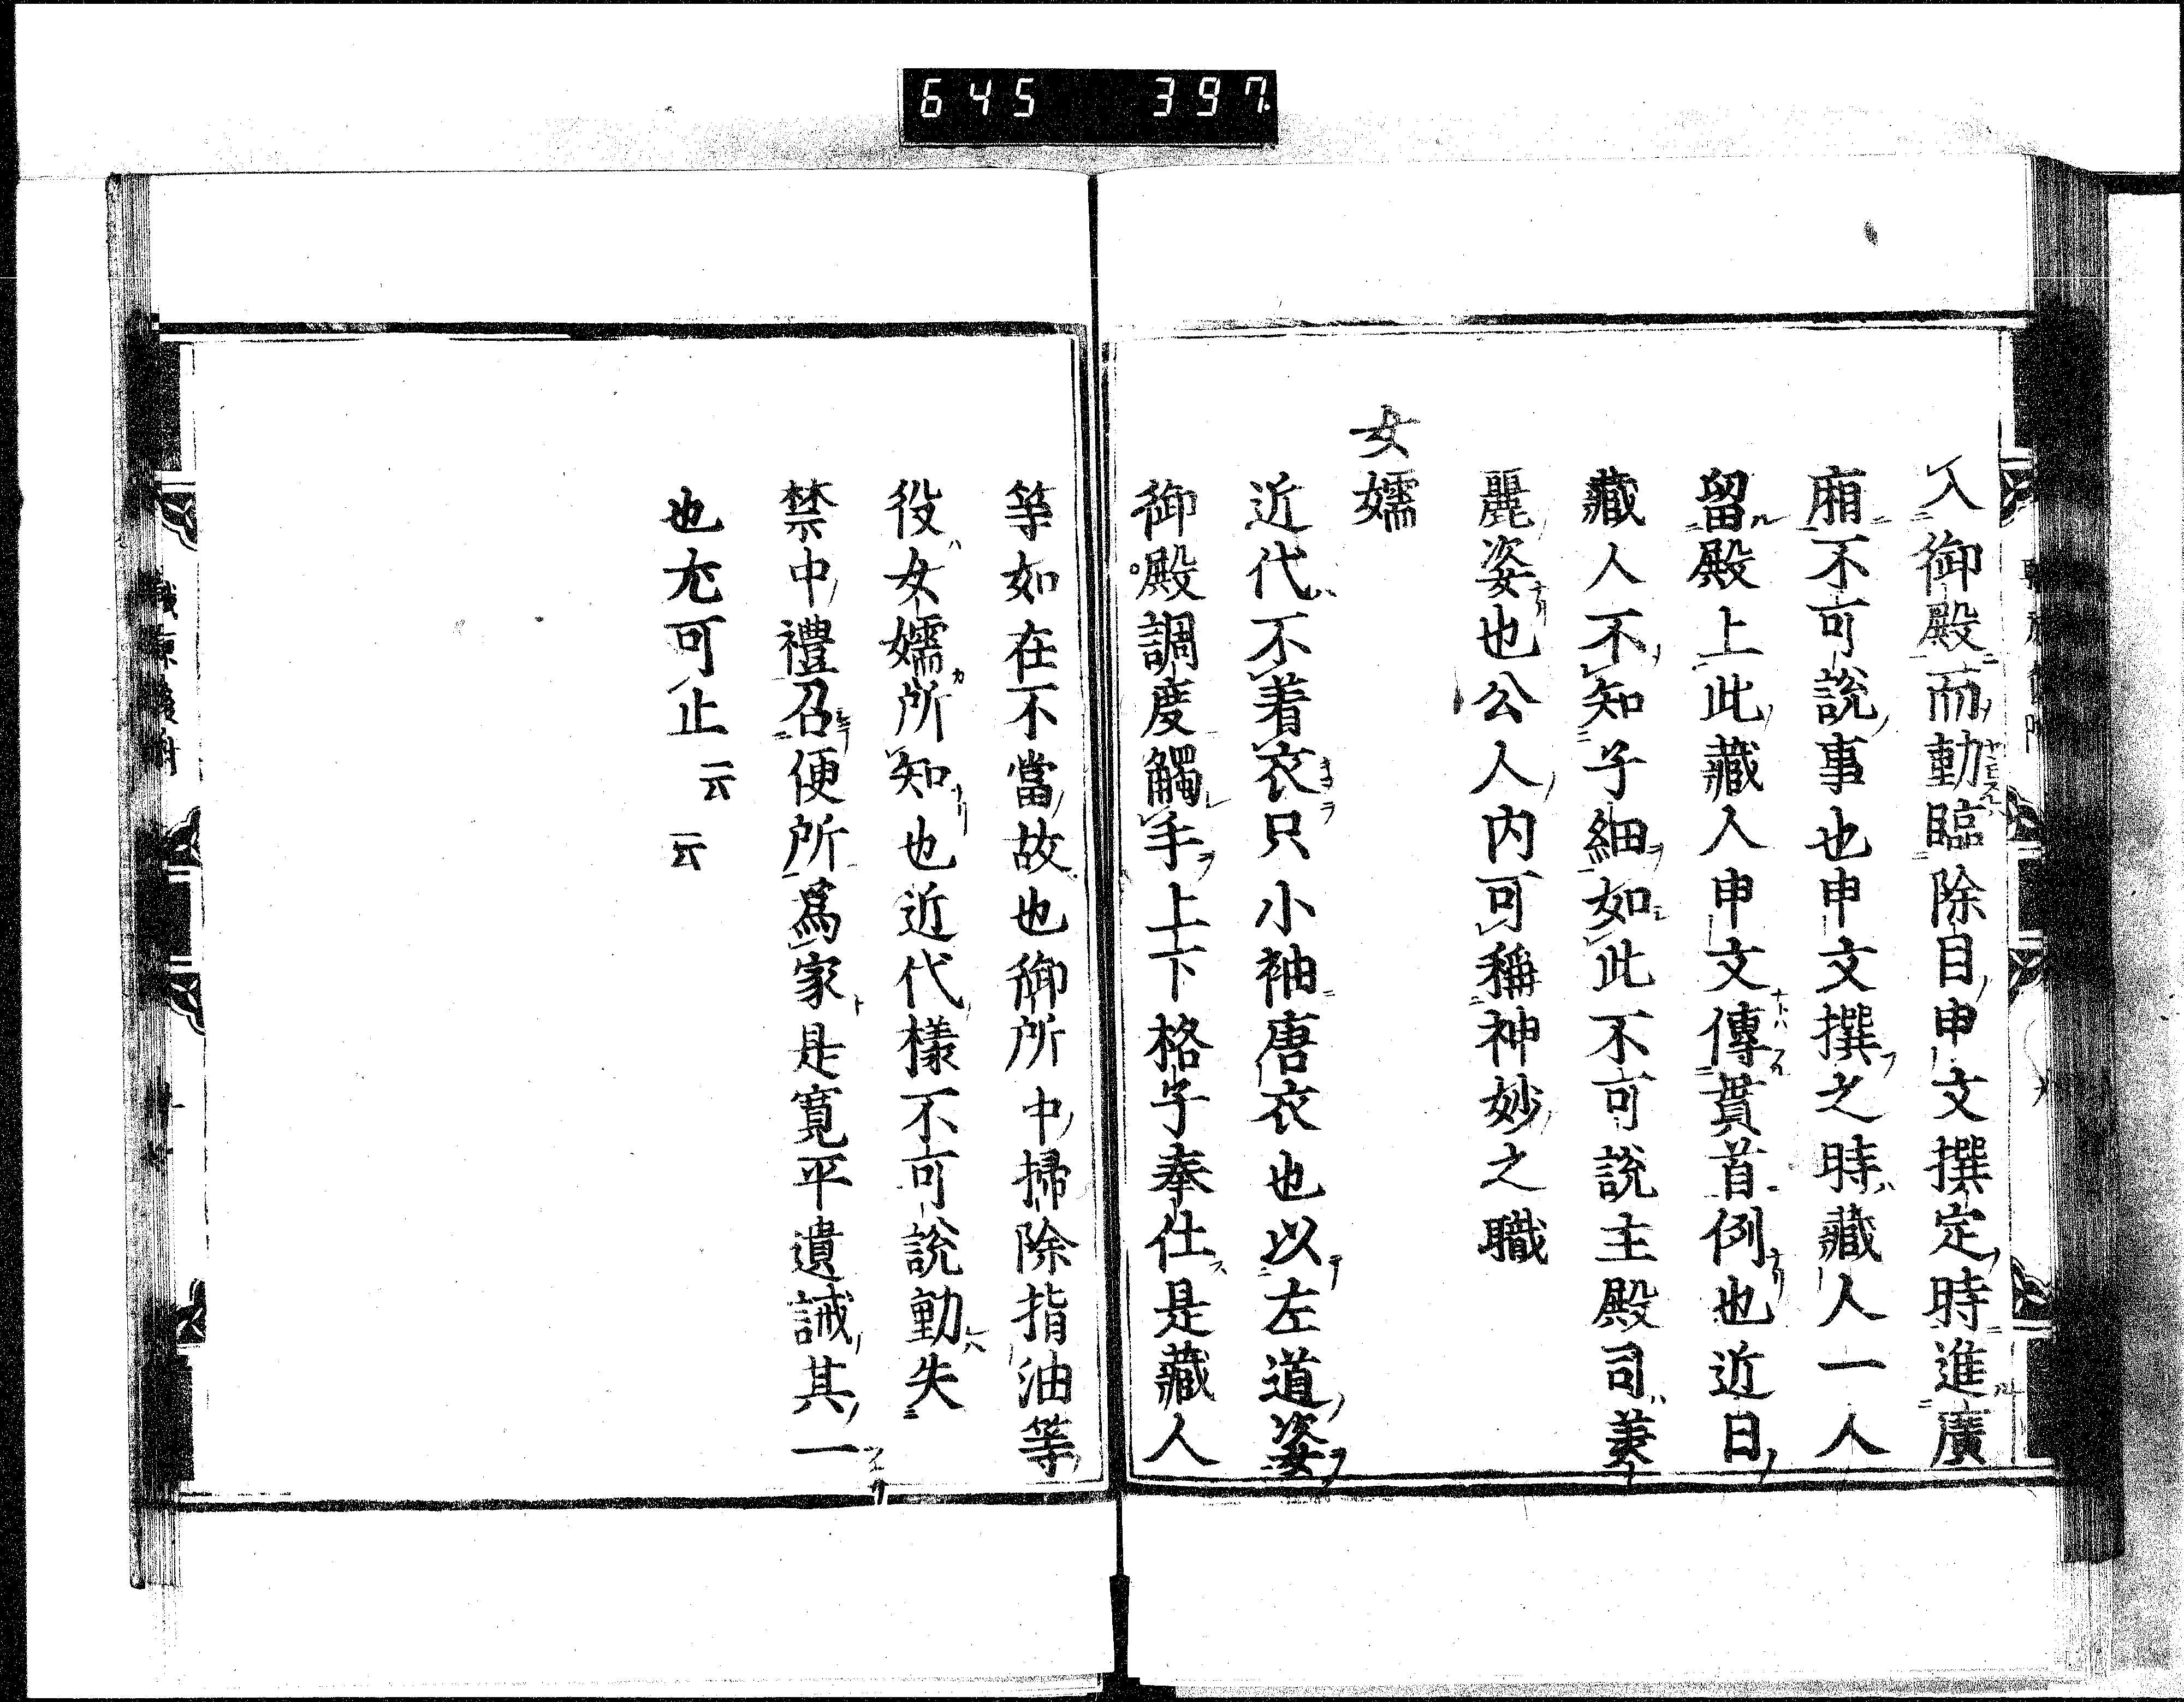 645 397
入御殿而動臨除目申文撰定時進廣
廂不可説事也申文撰之時藏人一人
留殿上此藏人申文傳貫首例也近日
藏人不知子細如此不可説主殿司美
麗姿也公人内可稱神妙之職
女嬬
近代不着衣只小袖唐衣也以左道姿
御殿調度觸手上下格子奉仕是藏人
等如在不當故也御所中掃除指油等
役女嬬所知也近代様不可説動失
禁中禮召便所爲家是寛平遺誡其一
也尤可止云云